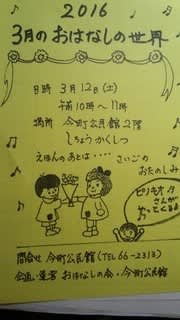 2016
3月のおはなしの世界
日時 3月12日(土)
午前10時〜11時
場所 今町公民館2階
しちょうかくしつ
えほんのあとは・・・・さいごの
おたのしみ
ピリキオ
さんが
やってくるよ
問合せ 今町公民館(TEL66-2313)
企画・運営 おはなしの会・今町公民館